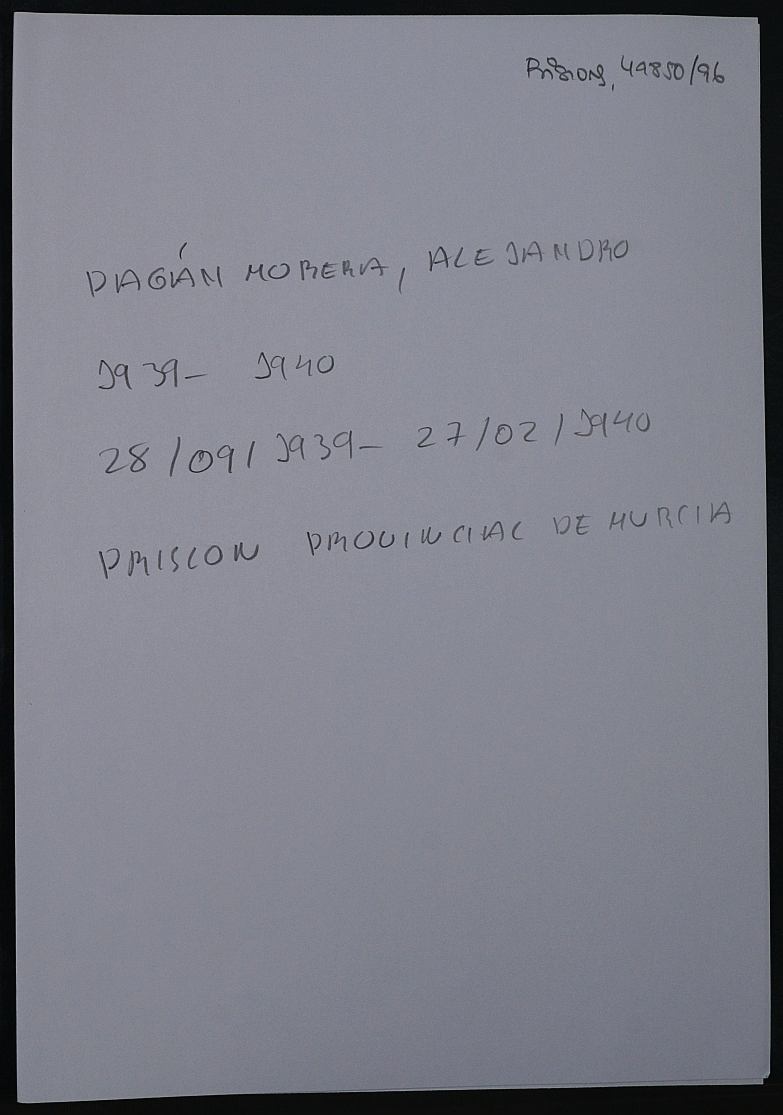 Prisiones, 49850/96
PAGÁN MORERA, ALEJANDRO
1939- 1940
28/09/1939- 27/02/1940
PRISION PROVINCIAL DE MURCIA